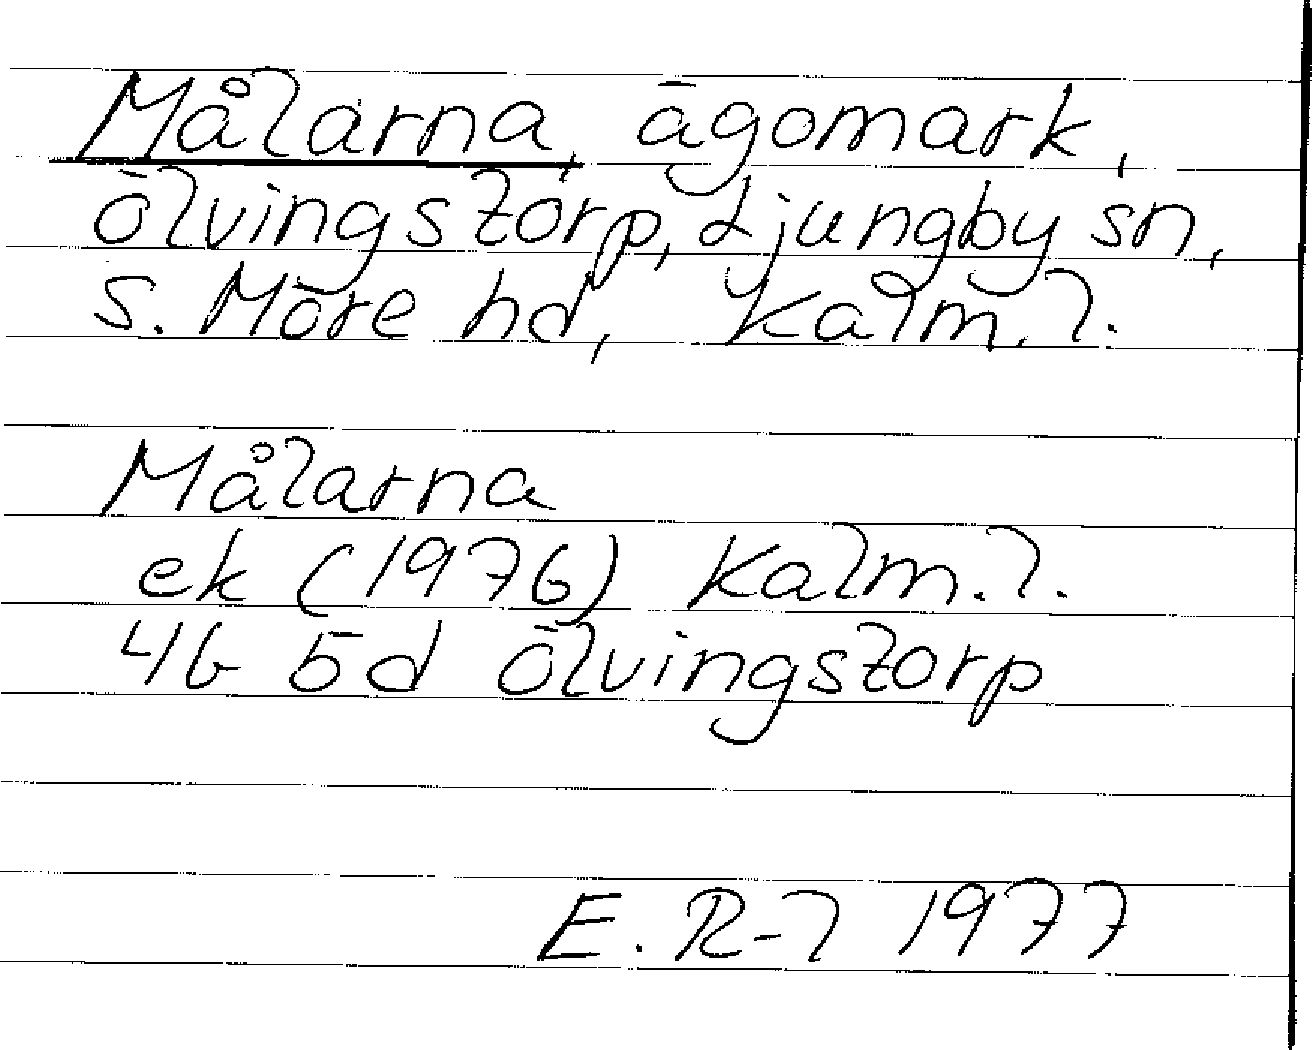 Målarna, ägomark,
Ölvingstorp, Ljungby sn,
S. Möre hd, Kalm. l.
Målarna
ek (1976) Kalm. l.
4G 5d Ölvingstorp
E. R-l 1977